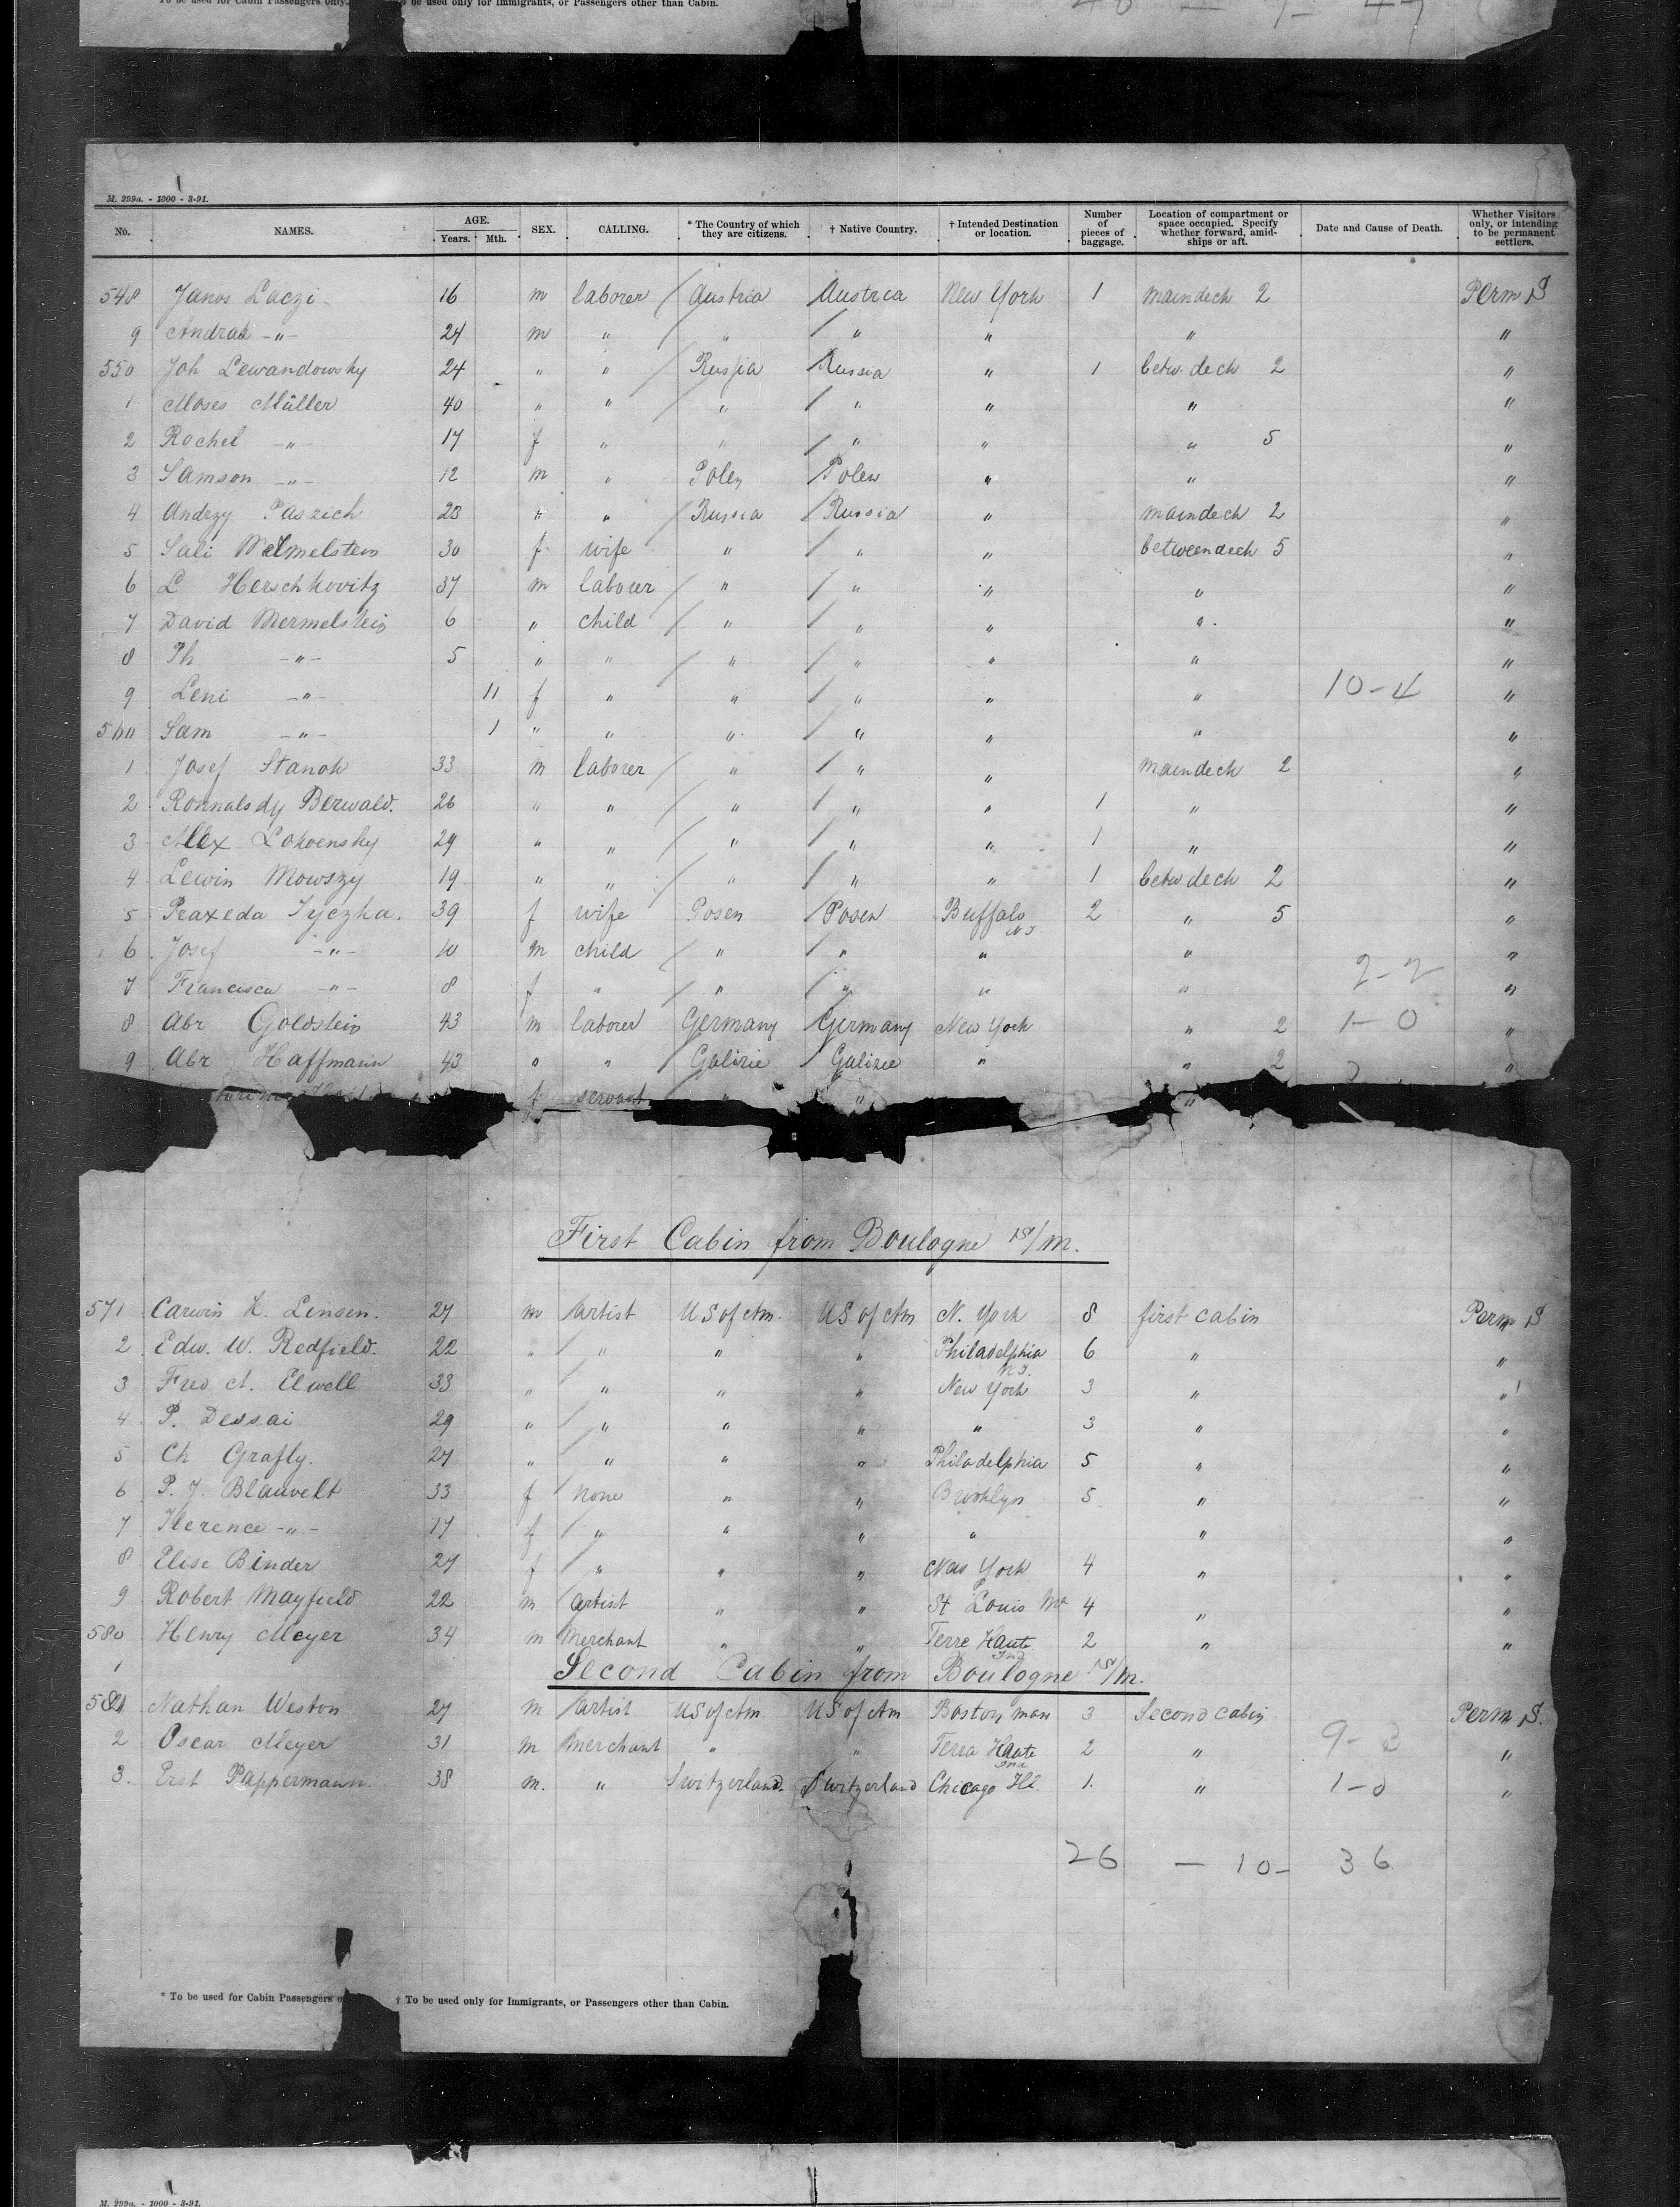 To be used for Cabin Passengers only. to be used only for Immigrants, or Passengers other than Cabin.
40 — 7 — 47
M. 299a. - 1000 - 3-91.
No. NAMES. AGE. Years. Mth. SEX. CALLING. * The Country of which they are citizens. † Native Country. † Intended Destination or location. Number of pieces of baggage. Location of compartment or space occupied. Specify whether forward, amidships or aft. Date and Cause of Death. Whether Visitors only, or intending to be permanent settlers.
548 Janos Laczi 16 m laborer Austria Austria New York 1 maindeck 2 Perm S
9 Andras -"- 24 m " " " " " "
550 Joh Lewandowsky 24 " " Russia Russia " 1 betw. deck 2 "
1 Moses Müller 40 " " " " " " "
2 Rochel -"- 17 f " " " " " 5 "
3 Samson -"- 12 m " Polen Polen " " "
4 Andrzy Paszich 23 " " Russia Russia " maindeck 2 "
5 Sali Melmelstein 30 f wife " " " betweendeck 5 "
6 L Herschkovitz 37 m laborer " " " " "
7 David Mermelstein 6 " child " " " " "
8 Ph -"- 5 " " " " " " "
9 Leni -"- 11 f " " " " " 10-4 "
560 Sam -"- 1 " " " " " " "
1 Josef Stanok 33 m laborer " " " maindeck 2 "
2 Ronnalsdy Berwald. 26 " " " " " 1 " "
3 Alex Lokoensky 29 " " " " " 1 " "
4 Lewin Mowszy 19 " " " " " 1 betw deck 2 "
5 Praxeda Tyczka. 39 f wife Posen Posen Buffalo 2 " 5 "
6 Josef -"- 10 m child " " " " "
7 Francisca -"- 8 f " " " " " 2-2 "
8 Abr Goldstein 43 m laborer Germany Germany New York " 2 1-0 "
9 Abr Haffmann 43 " " Galizie Galizie " " 2 "
f servant " " "
First Cabin from Boulogne s/m.
571 Carwin K. Linsen. 27 m artist US of Am. US of Am N. York 8 first cabin Perm S
2 Edw. W. Redfield. 22 " " " " Philadelphia 6 " "
3 Fred A. Elwell 33 " " " " New York 3 " "
4 P. Dessai 29 " " " " " 3 " "
5 Ch Grafly. 27 " " " " Philadelphia 5 " "
6 P. J. Blauvelt 33 f none " " Brooklyn 5 " "
7 Florence -"- 17 f " " " " " "
8 Elise Binder 27 f " " " New York 4 " "
9 Robert Mayfield 22 m artist " " St Louis Mo 4 " "
580 Henry Meyer 34 m merchant " " Terre Haute Ind 2 " "
Second Cabin from Boulogne s/m.
581 Nathan Weston 27 m artist US of Am US of Am Boston mass 3 Second cabin Perm S.
2 Oscar Meyer 31 m merchant " " Terra Haute Ind 2 " 9-3 "
3. Erst Pappermann 38 m. " Switzerland. Switzerland Chicago Ill. 1. " 1-0 "
26 — 10 — 36
* To be used for Cabin Passengers † To be used only for Immigrants, or Passengers other than Cabin.
M. 299a. - 1000 - 3-91.